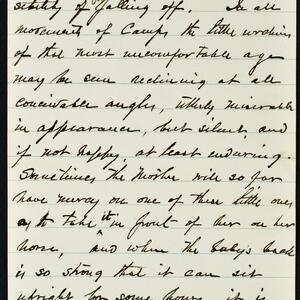 sibility of falling off. In all
movements of Camps the little urchins
of that most uncomfortable age
may be seen reclining at all
conceivable angles, utterly miserable
in appearance, but silent, and
if not happy, at least enduring.
Sometimes the Mother will so far
have mercy on one of these little ones
as to take it in front of her on her
horse, and when the baby's back
is so strong that it can sit
upright for some hours, it is